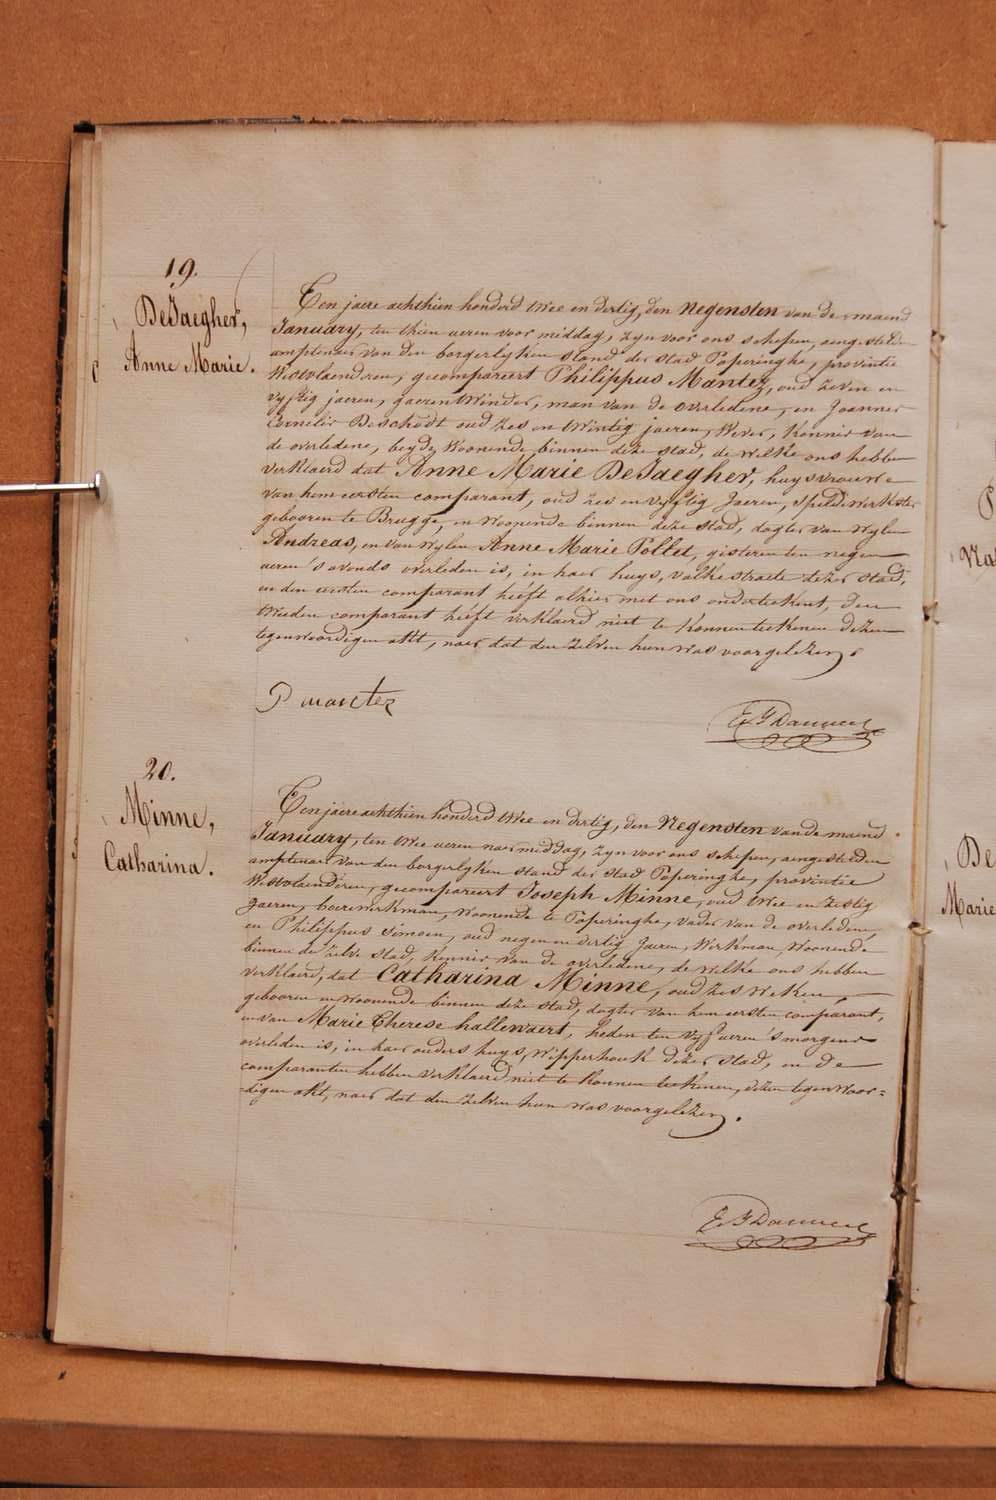 19.
DeJaegher,
Anne Marie.
Ten jaere achthien honderd twee en dertig, den Negensten van de maend
January, ten thien ueren voor middag, zyn voor ons schepen, aengestelden
amptenaer van den borgerlyken stand der stad Poperinghe, provintie
Westvlaenderen, gecompareert Philippus Mantez, oud zeven en
vyftig jaeren, gaerentwinder, man van de overledene, en Joannes
Cornelis Deschodt oud zes en twintig jaeren, Wever, kennis van
de overledene, beyde woonende binnen deze stad, de welke ons hebben
verklaerd dat Anne Marie DeJaegher, huysvrouwe
van hem eersten comparant, oud zes en vyftig Jaeren, speldewerkster
gebooren te Brugge, en woonende binnen deze stad, dogter van wylen
Andreas, en van wylen Anne Marie Pollet, gisteren ten negen
ueren 's avonds overleden is, in haer huys, valkestraete dezer stad,
en den eersten comparant heeft alhier met ons onderteekent, den
tweeden comparant heeft verklaerd niet te konnen teekenen dezen
tegenwoordigen akt, naer dat den zelven hun was voorgelezen.
P mantez
20.
Minne,
Catharina.
Ten jaere achthien honderd twee en dertig, den Negensten van de maend
January, ten twee ueren naer middag, zyn voor ons schepen, aengestelden
amptenaer van den borgerlyken stand der stad Poperinghe, provintie
Westvlaenderen, gecompareert Joseph Minne, oud twee en zestig
jaeren, boerewerkman, woonende te Poperinghe, vader van de overledene,
en Philippus Simoen, oud negen en dertig Jaeren, Werkman, woonende
binnen de zelve stad, kennis van de overledene, de welke ons hebben
verklaerd, dat Catharina Minne, oud zes weken,
gebooren en woonende binnen deze stad, dogter van hem eersten comparant,
en van Marie Therese hallewaert, heden ten vyf ueren 's morgens
overleden is, in haer ouders huys, Wipperhoek dezer stad, en de
comparanten hebben verklaerd niet te konnen teekenen, dezen tegenwoor=
=digen akt, naer dat den zelven hun was voorgelezen.
De
Marie